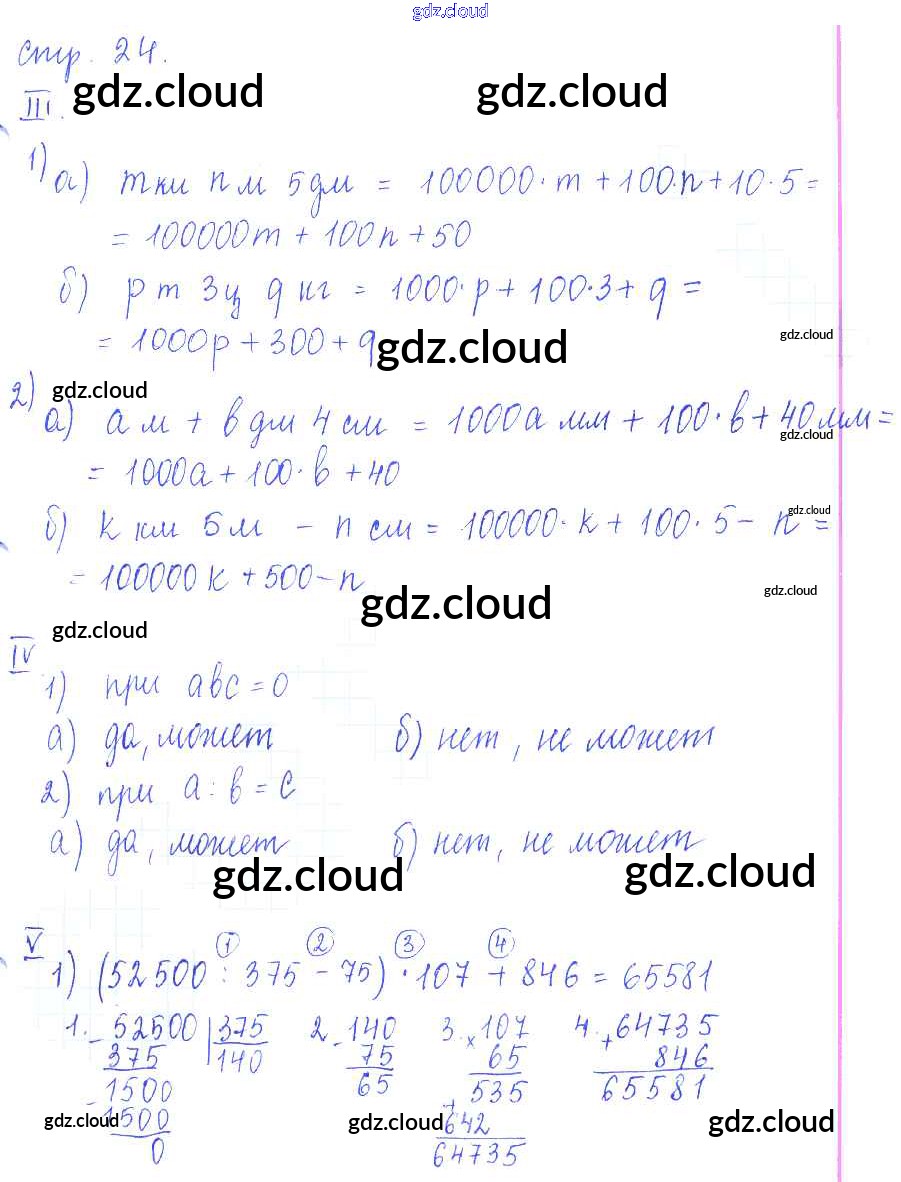 gdz.cloud
стр. 24.
gdz.cloud gdz.cloud
III.
1) а) m км n м 5 дм = 100000·m + 100·n + 10·5 =
= 100000m + 100n + 50
б) p т 3ц q кг = 1000·p + 100·3 + q =
= 1000p + 300 + q
gdz.cloud gdz.cloud
2) gdz.cloud
а) a м + b дм 4 см = 1000a мм + 100·b + 40 мм =
gdz.cloud
= 1000a + 100·b + 40
б) k км 5 м - n см = 100000·k + 100·5 - n =
gdz.cloud
= 100000k + 500 - n
gdz.cloud gdz.cloud
gdz.cloud
IV
1) при abc = 0
а) да, может б) нет, не может
2) при a : b = c
а) да, может б) нет, не может
gdz.cloud gdz.cloud
V 1 2 3 4
1) (52500 : 375 - 75) · 107 + 846 = 65581
1. - 52500 | 375 2. - 140 3. x 107 4. + 64735
375 140 75 65 846
- 1500 65 + 535 65581
1500 642
0 64735
gdz.cloud gdz.cloud gdz.cloud